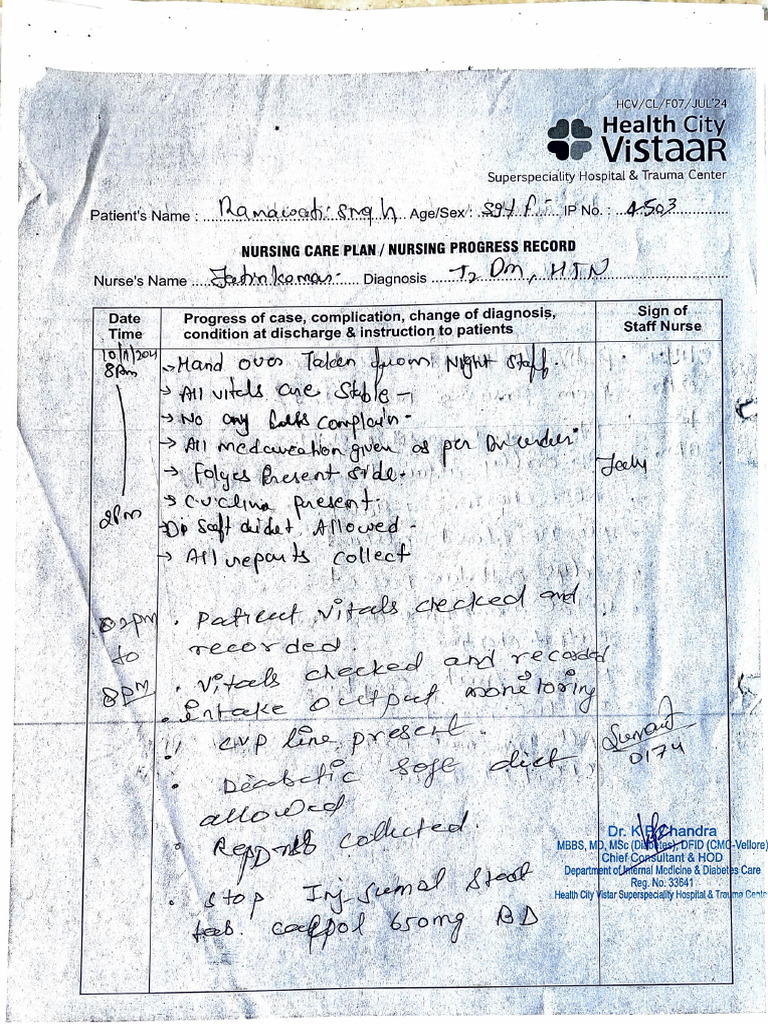 HCV/CL/F07/JUL'24
Health City
Vistaar
Superspeciality Hospital & Trauma Center
Patient's Name : Ramawati Singh Age/Sex : 59y/F IP No. : 4503
NURSING CARE PLAN / NURSING PROGRESS RECORD
Nurse's Name Diagnosis T2 DM, HTN
Date Time
Progress of case, complication, change of diagnosis, condition at discharge & instruction to patients
Sign of Staff Nurse
8am
→ Hand over Taken from Night Staff.
→ All vitals are Stable -
→ No any complain -
→ All medaucation given as per Dr. order
→ Folyes Present side -
→ present.
2pm
Soft Allowed -
→ All reports collect
02pm
to
8pm
• Patient vitals checked and
recorded.
• Vitals checked and recorded
• Intake output monitoring
• CVP line present.
• Diabetic diet
allowed
• Reports collected.
• Stop Inj.
tab. calpol 650mg BD
0174
Dr. K.P. Chandra
MBBS, MD, MSc (Diabetes), DFID (CMC-Vellore)
Chief Consultant & HOD
Department of Internal Medicine & Diabetes Care
Reg. No. 33641
Health City Vistar Superspeciality Hospital & Trauma Cente